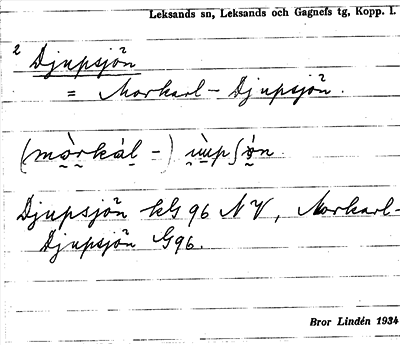 Leksands sn, Leksands och Gagnefs tg, Kopp. l.
2 Djupsjön
= Morkarl - Djupsjön.
(mòrkàl -)
Djupsjön kG 96 NV, Morkarl-
Djupsjön G96.
Bror Lindén 1934